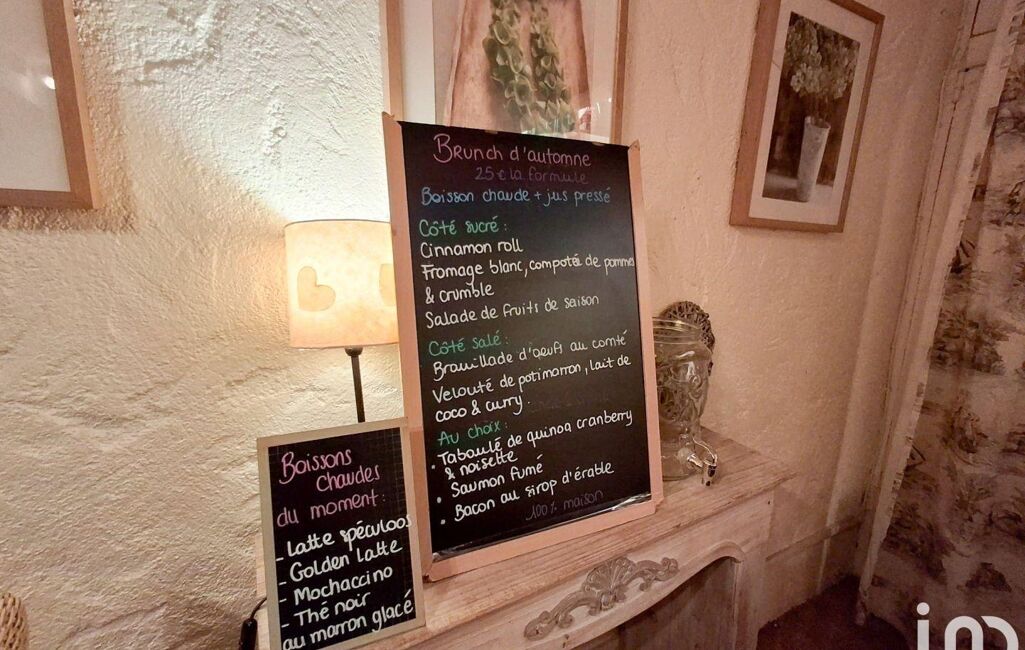 Brunch d'automne
25€ la formule
Boisson chaude + jus pressé
Côté sucré :
Cinnamon roll
Fromage blanc, compotée de pommes
& crumble
Salade de fruits de saison
Côté salé :
Brouillade d'oeufs au comté
Velouté de potimarron, lait de
coco & curry.
Au choix :
• Taboulé de quinoa cranberry
& noisette
• Saumon fumé
• Bacon au sirop d'érable
100% maison
Boissons
chaudes
du moment :
- Latte spéculoos
- Golden latte
- Mochaccino
- Thé noir
au marron glacé